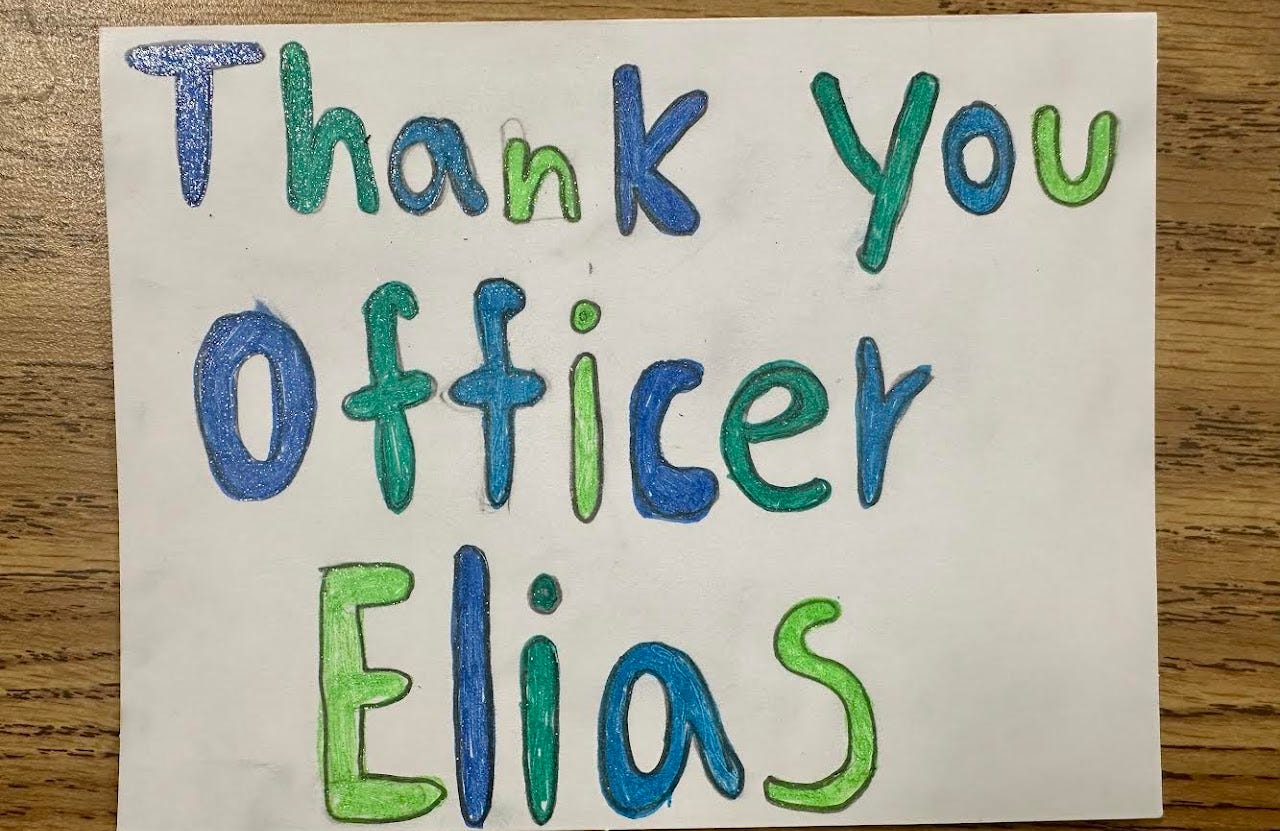 Thank you
Officer
Elias